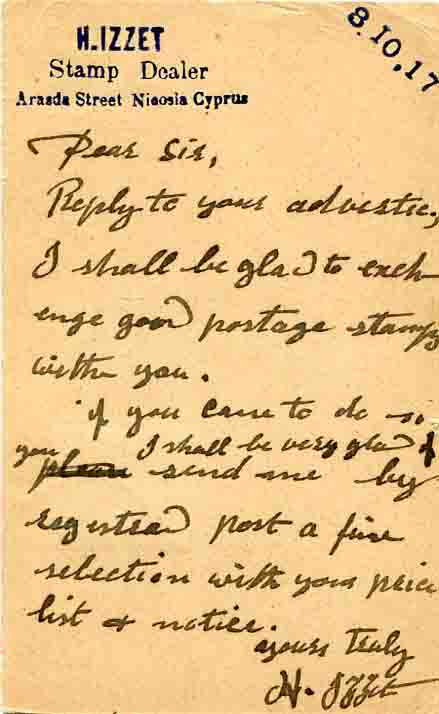 H. IZZET
Stamp Dealer
Arasda Street Nicosia Cyprus
8.10.17
Dear Sir,
Reply to your advertie,
I shall be glad to exch-
enge good postage stamps
with you.
if you cane to do so
I shall be very glad if
you send me by
registread post a fine
selection with your price
list & notice.
yours truly
H. Izzet